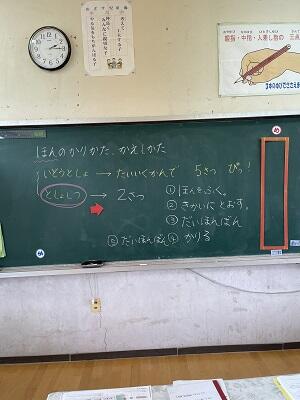 親指・中指・人差し指の 三点
3本のゆびでささえま
め
ほんのかりかた、かえしかた
いどうとしょ → たいいくかんで 5さつ ぴっ!
としょしつ → 2さつ
①ほんをふく。
②きかいに とおす。
③だいほんばん
④かりる
⑤だいほんばん